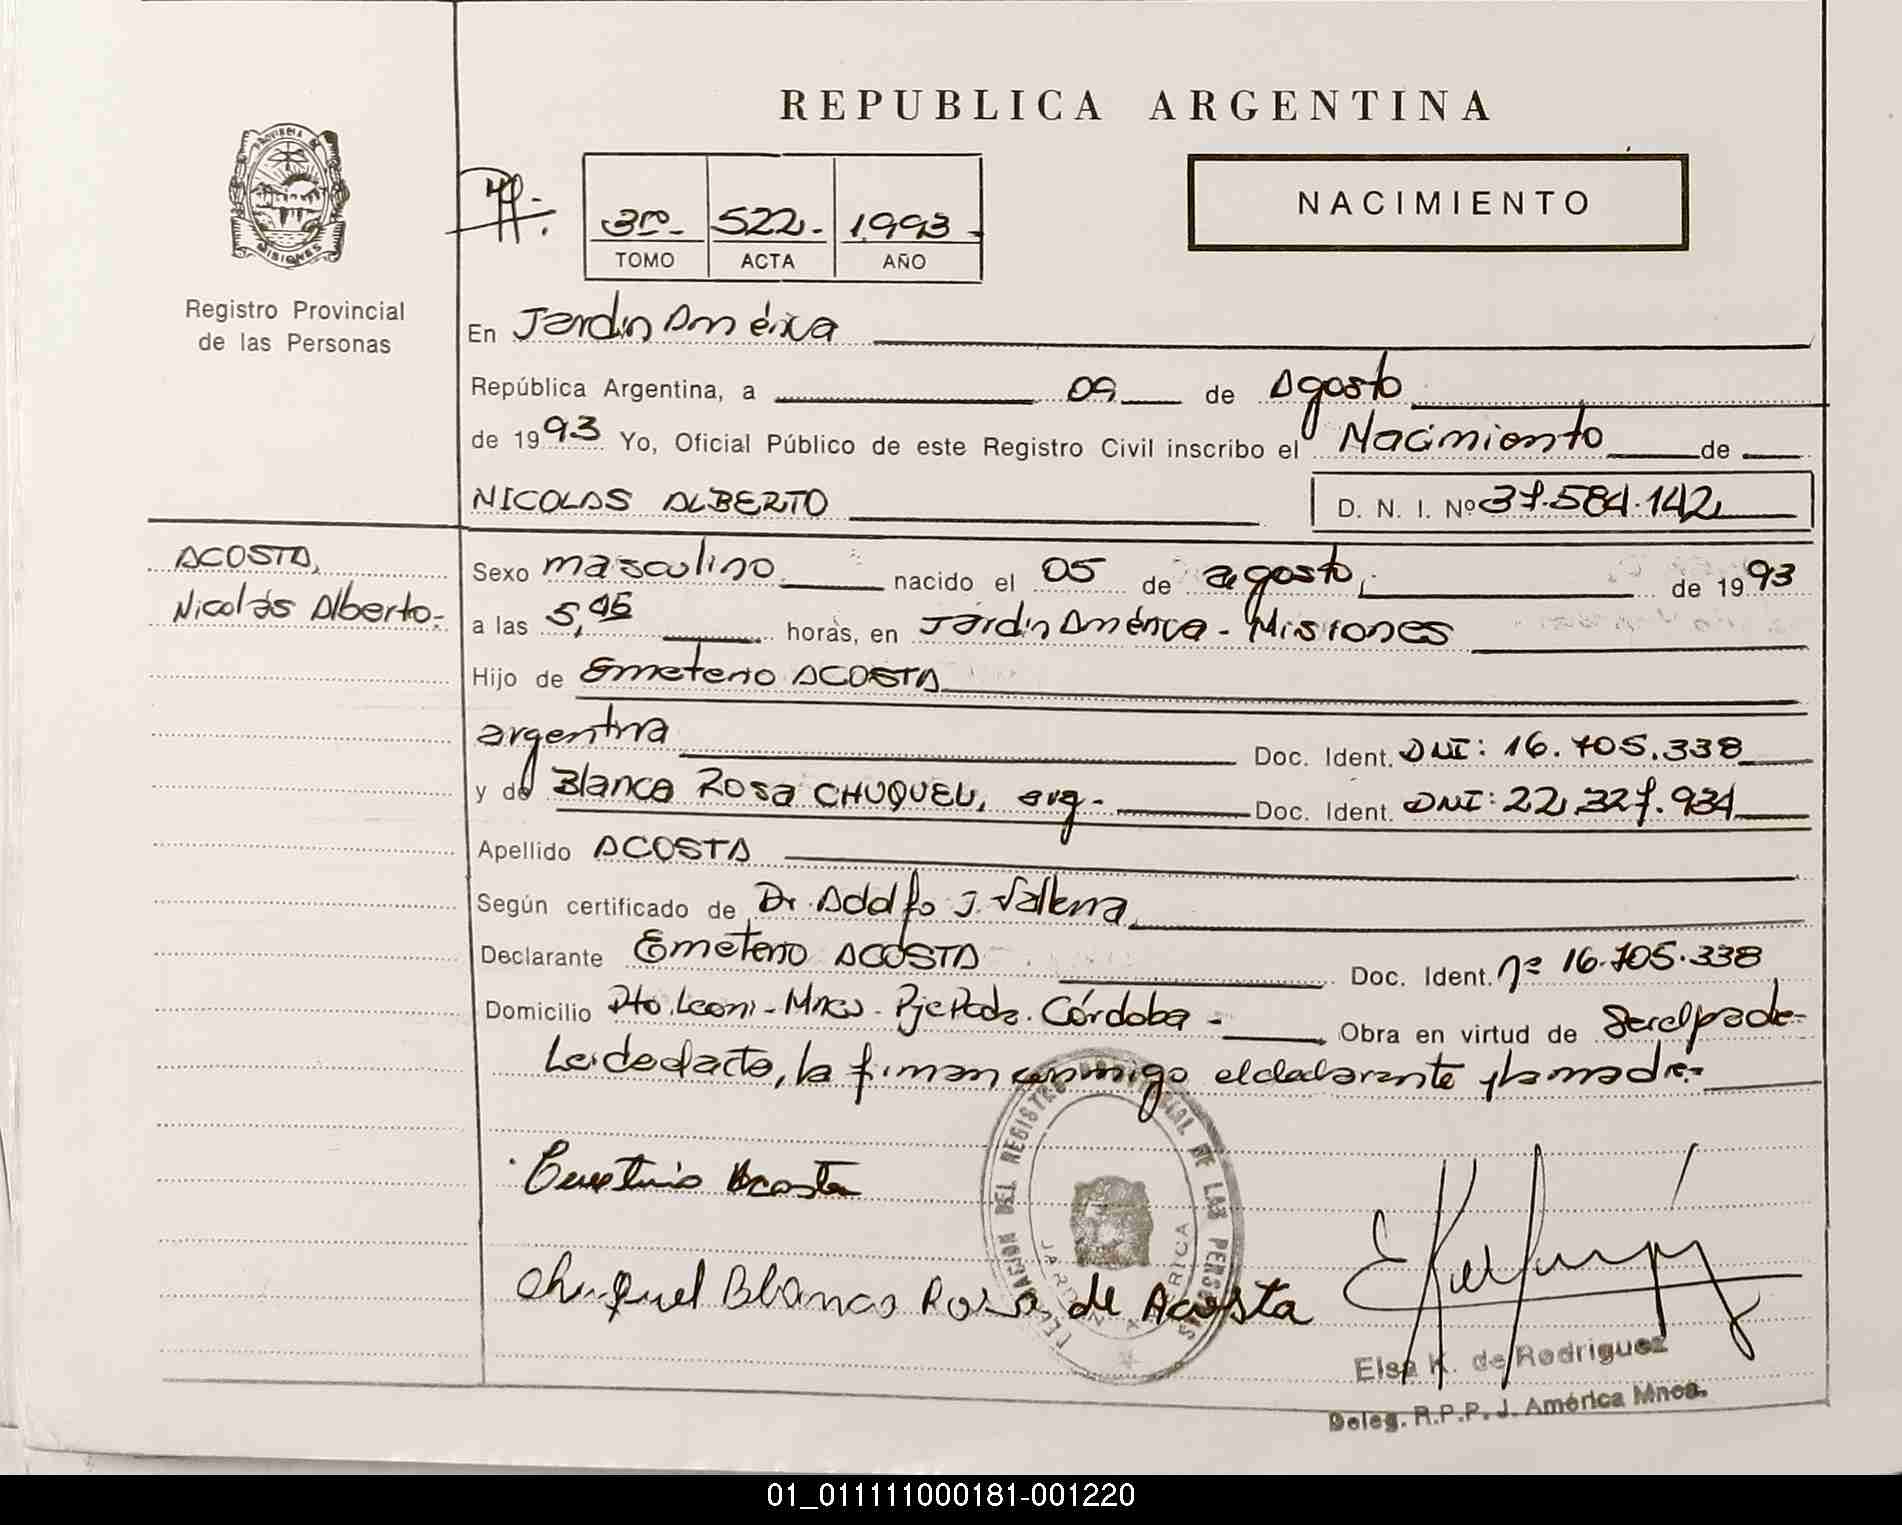 REPUBLICA ARGENTINA
PROVINCIA DE MISIONES
Registro Provincial
de las Personas
3ro- 522- 1993-
TOMO ACTA AÑO
NACIMIENTO
En Jardín América
República Argentina, a 09 de Agosto
de 1993 Yo, Oficial Público de este Registro Civil inscribo el Nacimiento de
NICOLAS ALBERTO D. N. I. Nº 37.584.142
ACOSTA,
Nicolás Alberto.-
Sexo masculino nacido el 05 de agosto, de 1993
a las 5,45 horas, en Jardín América - Misiones
Hijo de Emeterio ACOSTA
argentina Doc. Ident. DNI: 16.705.338
y de Blanca Rosa CHUQUEL, arg.- Doc. Ident. DNI: 22.327.934
Apellido ACOSTA
Según certificado de Dr. Adolfo J.
Declarante Emeterio ACOSTA Doc. Ident. nº 16.705.338
Domicilio Pto. Leoni - Mnes - Pje Pcda. Córdoba - Obra en virtud de Ser el padre-
Leída el acta, la firman conmigo el declarante y la madre.-
Emeterio Acosta
Chuquel Blanca Rosa de Acosta
DELEGACION DEL REGISTRO PROVINCIAL DE LAS PERSONAS
JARDIN AMERICA
Elsa K. de Rodriguez
Deleg. R.P.P. J. América Mnes.
01_011111000181-001220